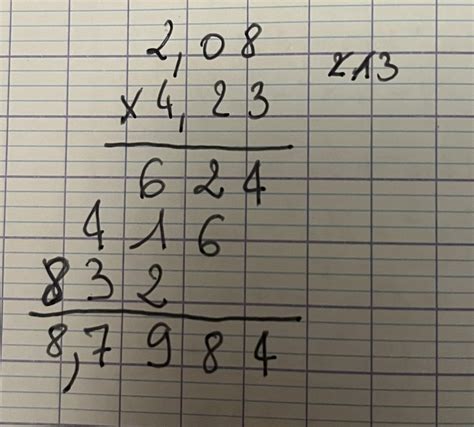 2,08
×4,23
624
416
832
8,7984